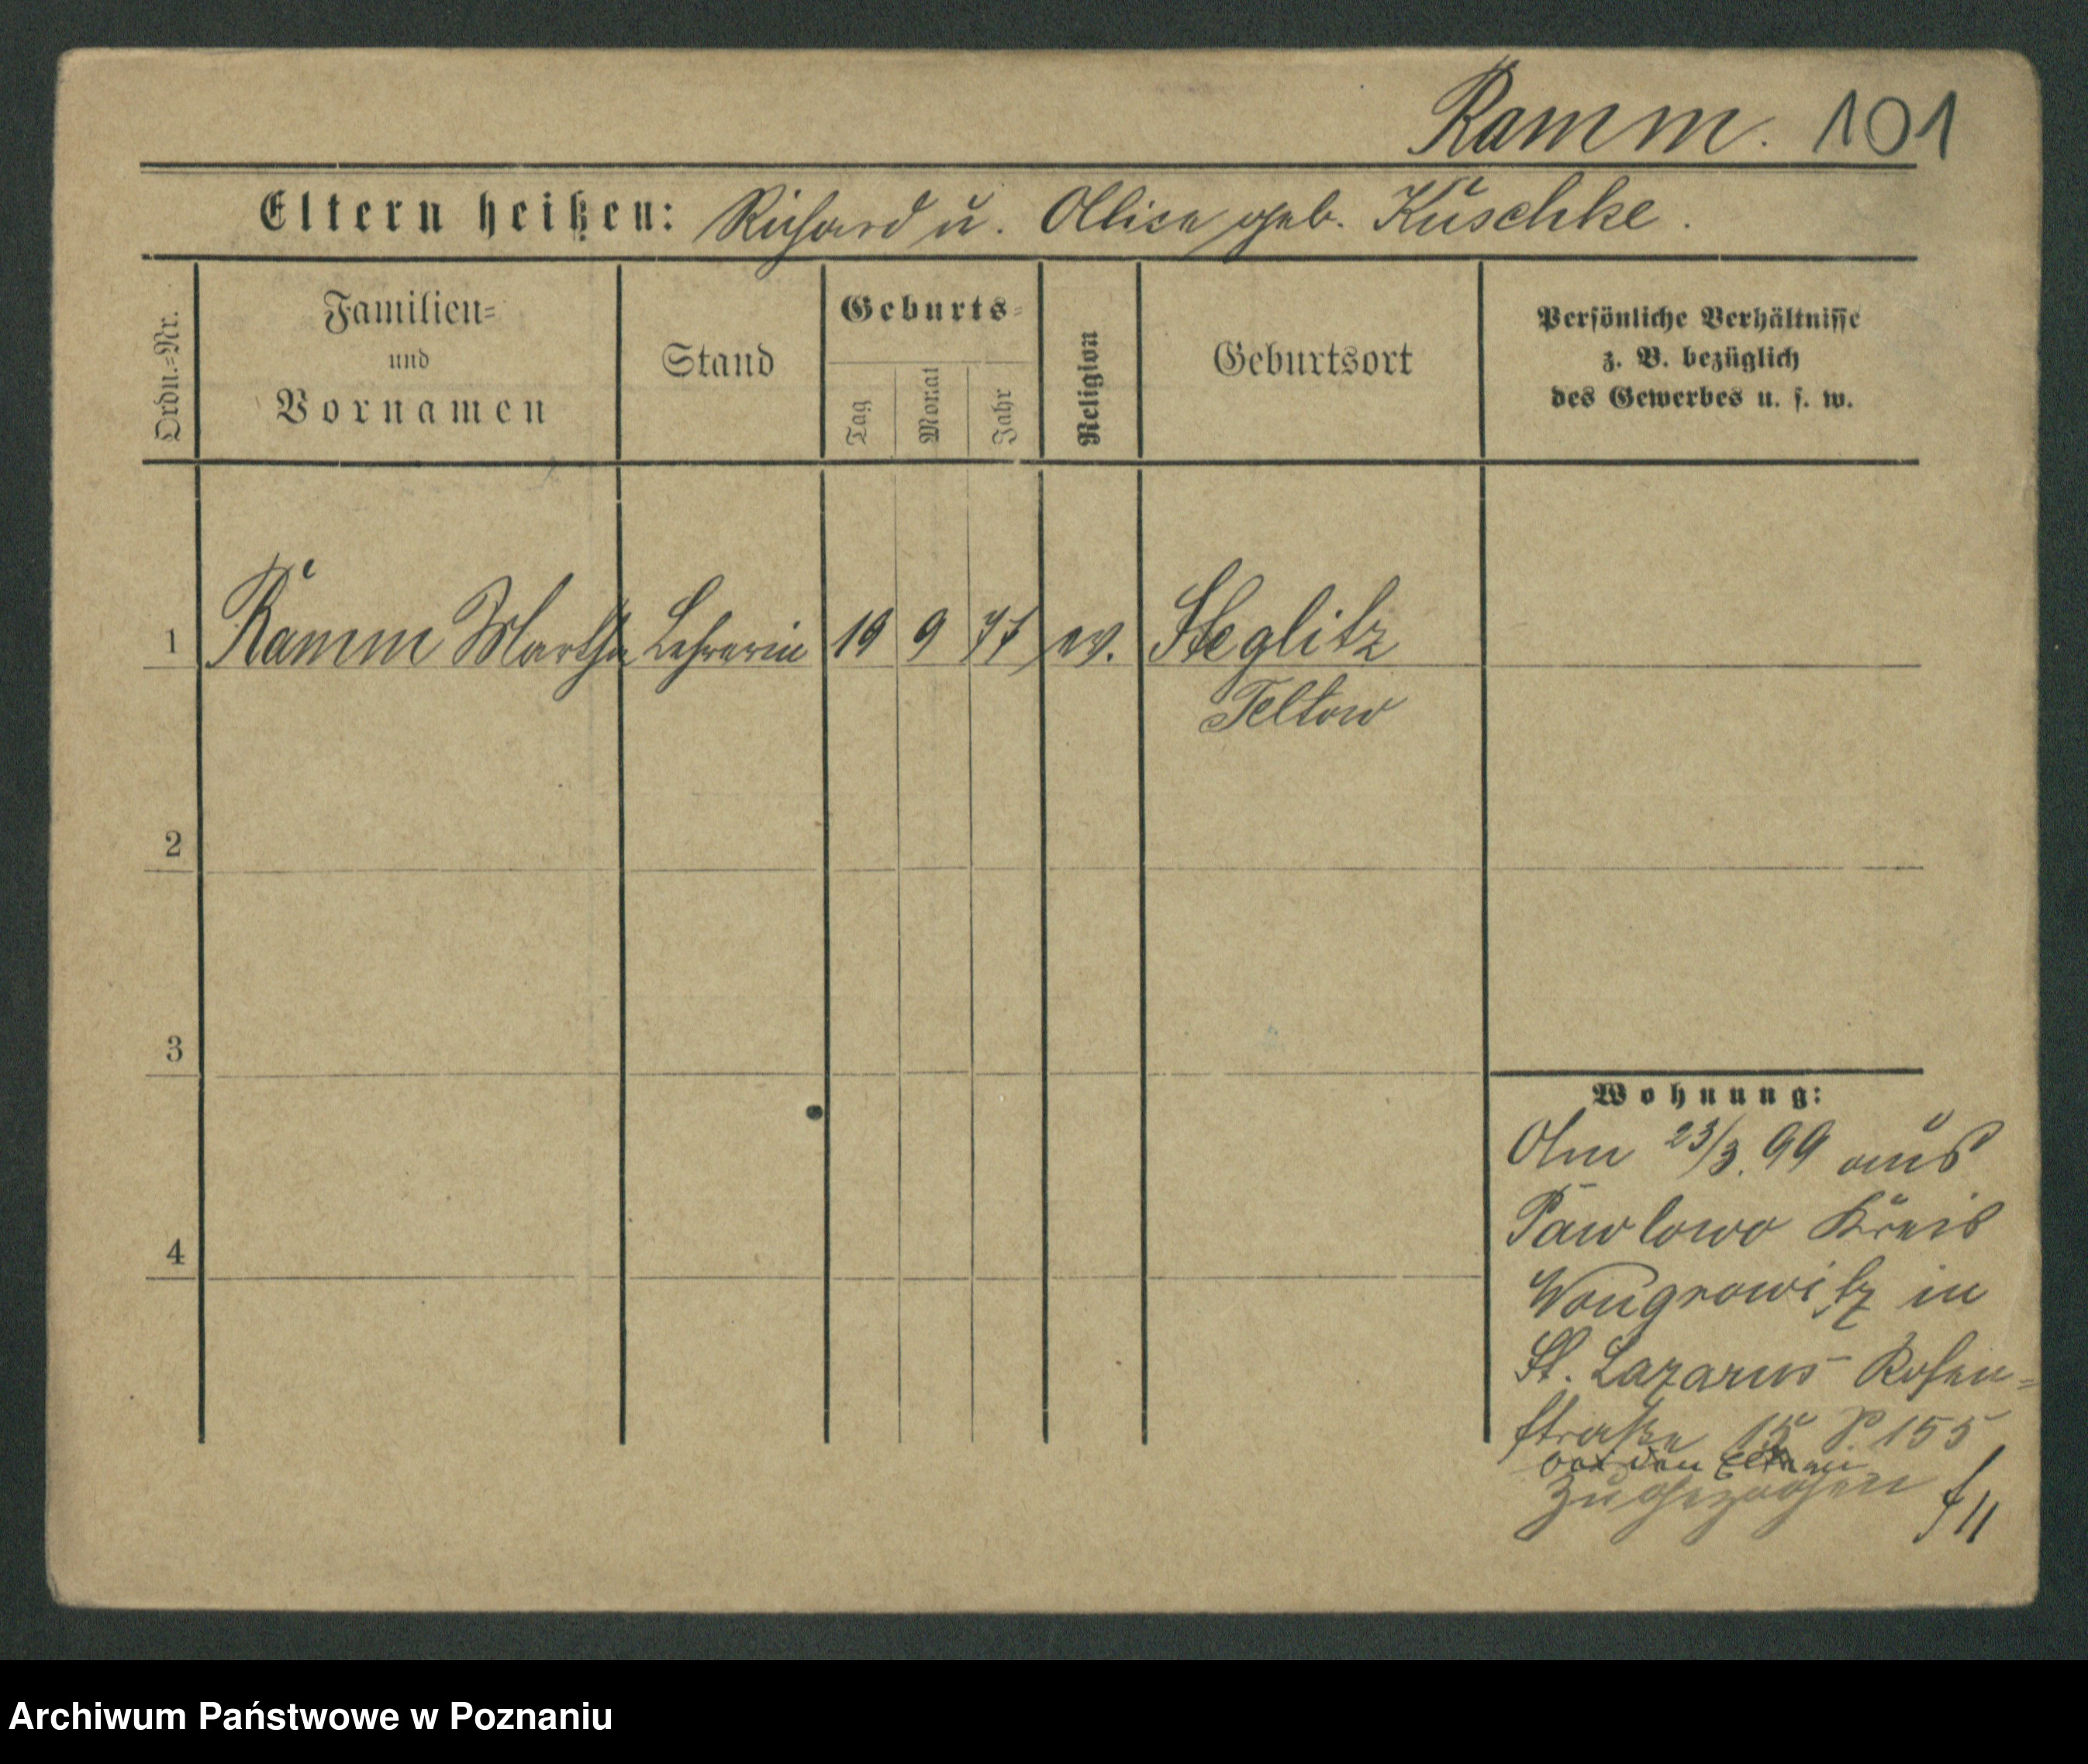 Ramm. 101
Eltern heißen: Richard u. Alice geb. Kuschke.
Ordn.-Nr.
Familien-
und
Vornamen
Stand
Geburts-
Tag
Monat
Jahr
Religion
Geburtsort
Persönliche Verhältnisse
z. B. bezüglich
des Gewerbes u. s. w.
1 Ramm Martha Lehrerin 19 9 77 ev. Steglitz
Teltow
2
3
4
Wohnung:
Am 23/3. 99 aus
Pawlowo Kreis
Wongrowitz in
St. Lazarus Rosen-
straße 15 P. 155
den Eltern
zugezogen
Archiwum Państwowe w Poznaniu